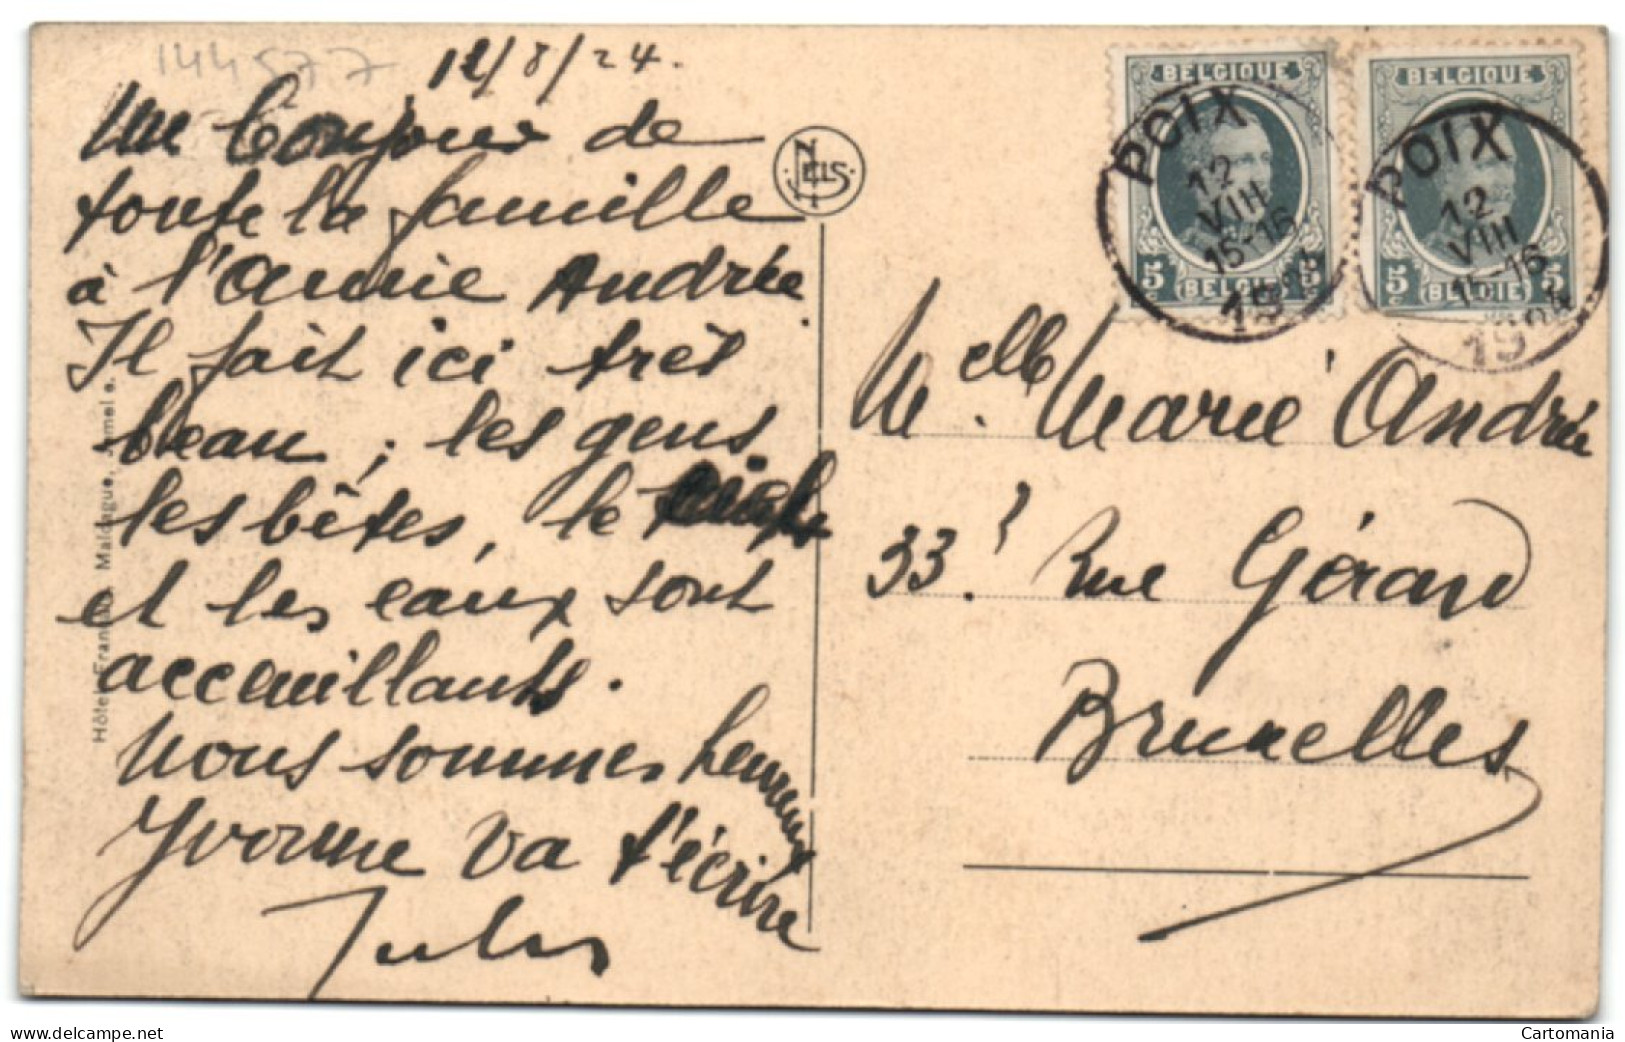 144577
12/8/24.
Un bonjour de
toute la famille
à l'amie Andrée.
Il fait ici très
beau ; les gens,
les bêtes, le
et les eaux sont
accueillants.
Nous sommes heureux
Yvonne va t'écrire
Jules
NELS
Hôtel Maldague, Amel e.
BELGIQUE
5c BELGIË 5c
BELGIQUE
5c BELGIË 5c
POIX
12
VIII
15-16
1924
POIX
12
VIII
15-16
1924
Melle Marie Andrée
33, Rue Gérard
Bruxelles
delcampe.net
Cartomania